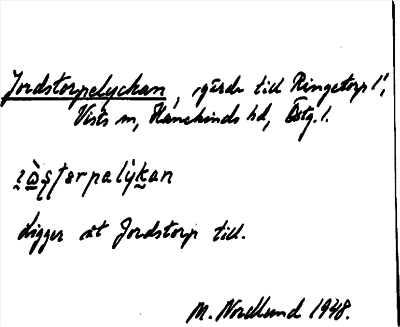 Jordstorpelyckan, gärde till Ringetorp 1¹,
Vists sn, Hanekinds hd, Östg. l.
ɩ̀ὼṣṭɛrpalỳkan
Ligger åt Jordstorp till.
M. Nordlund 1948.